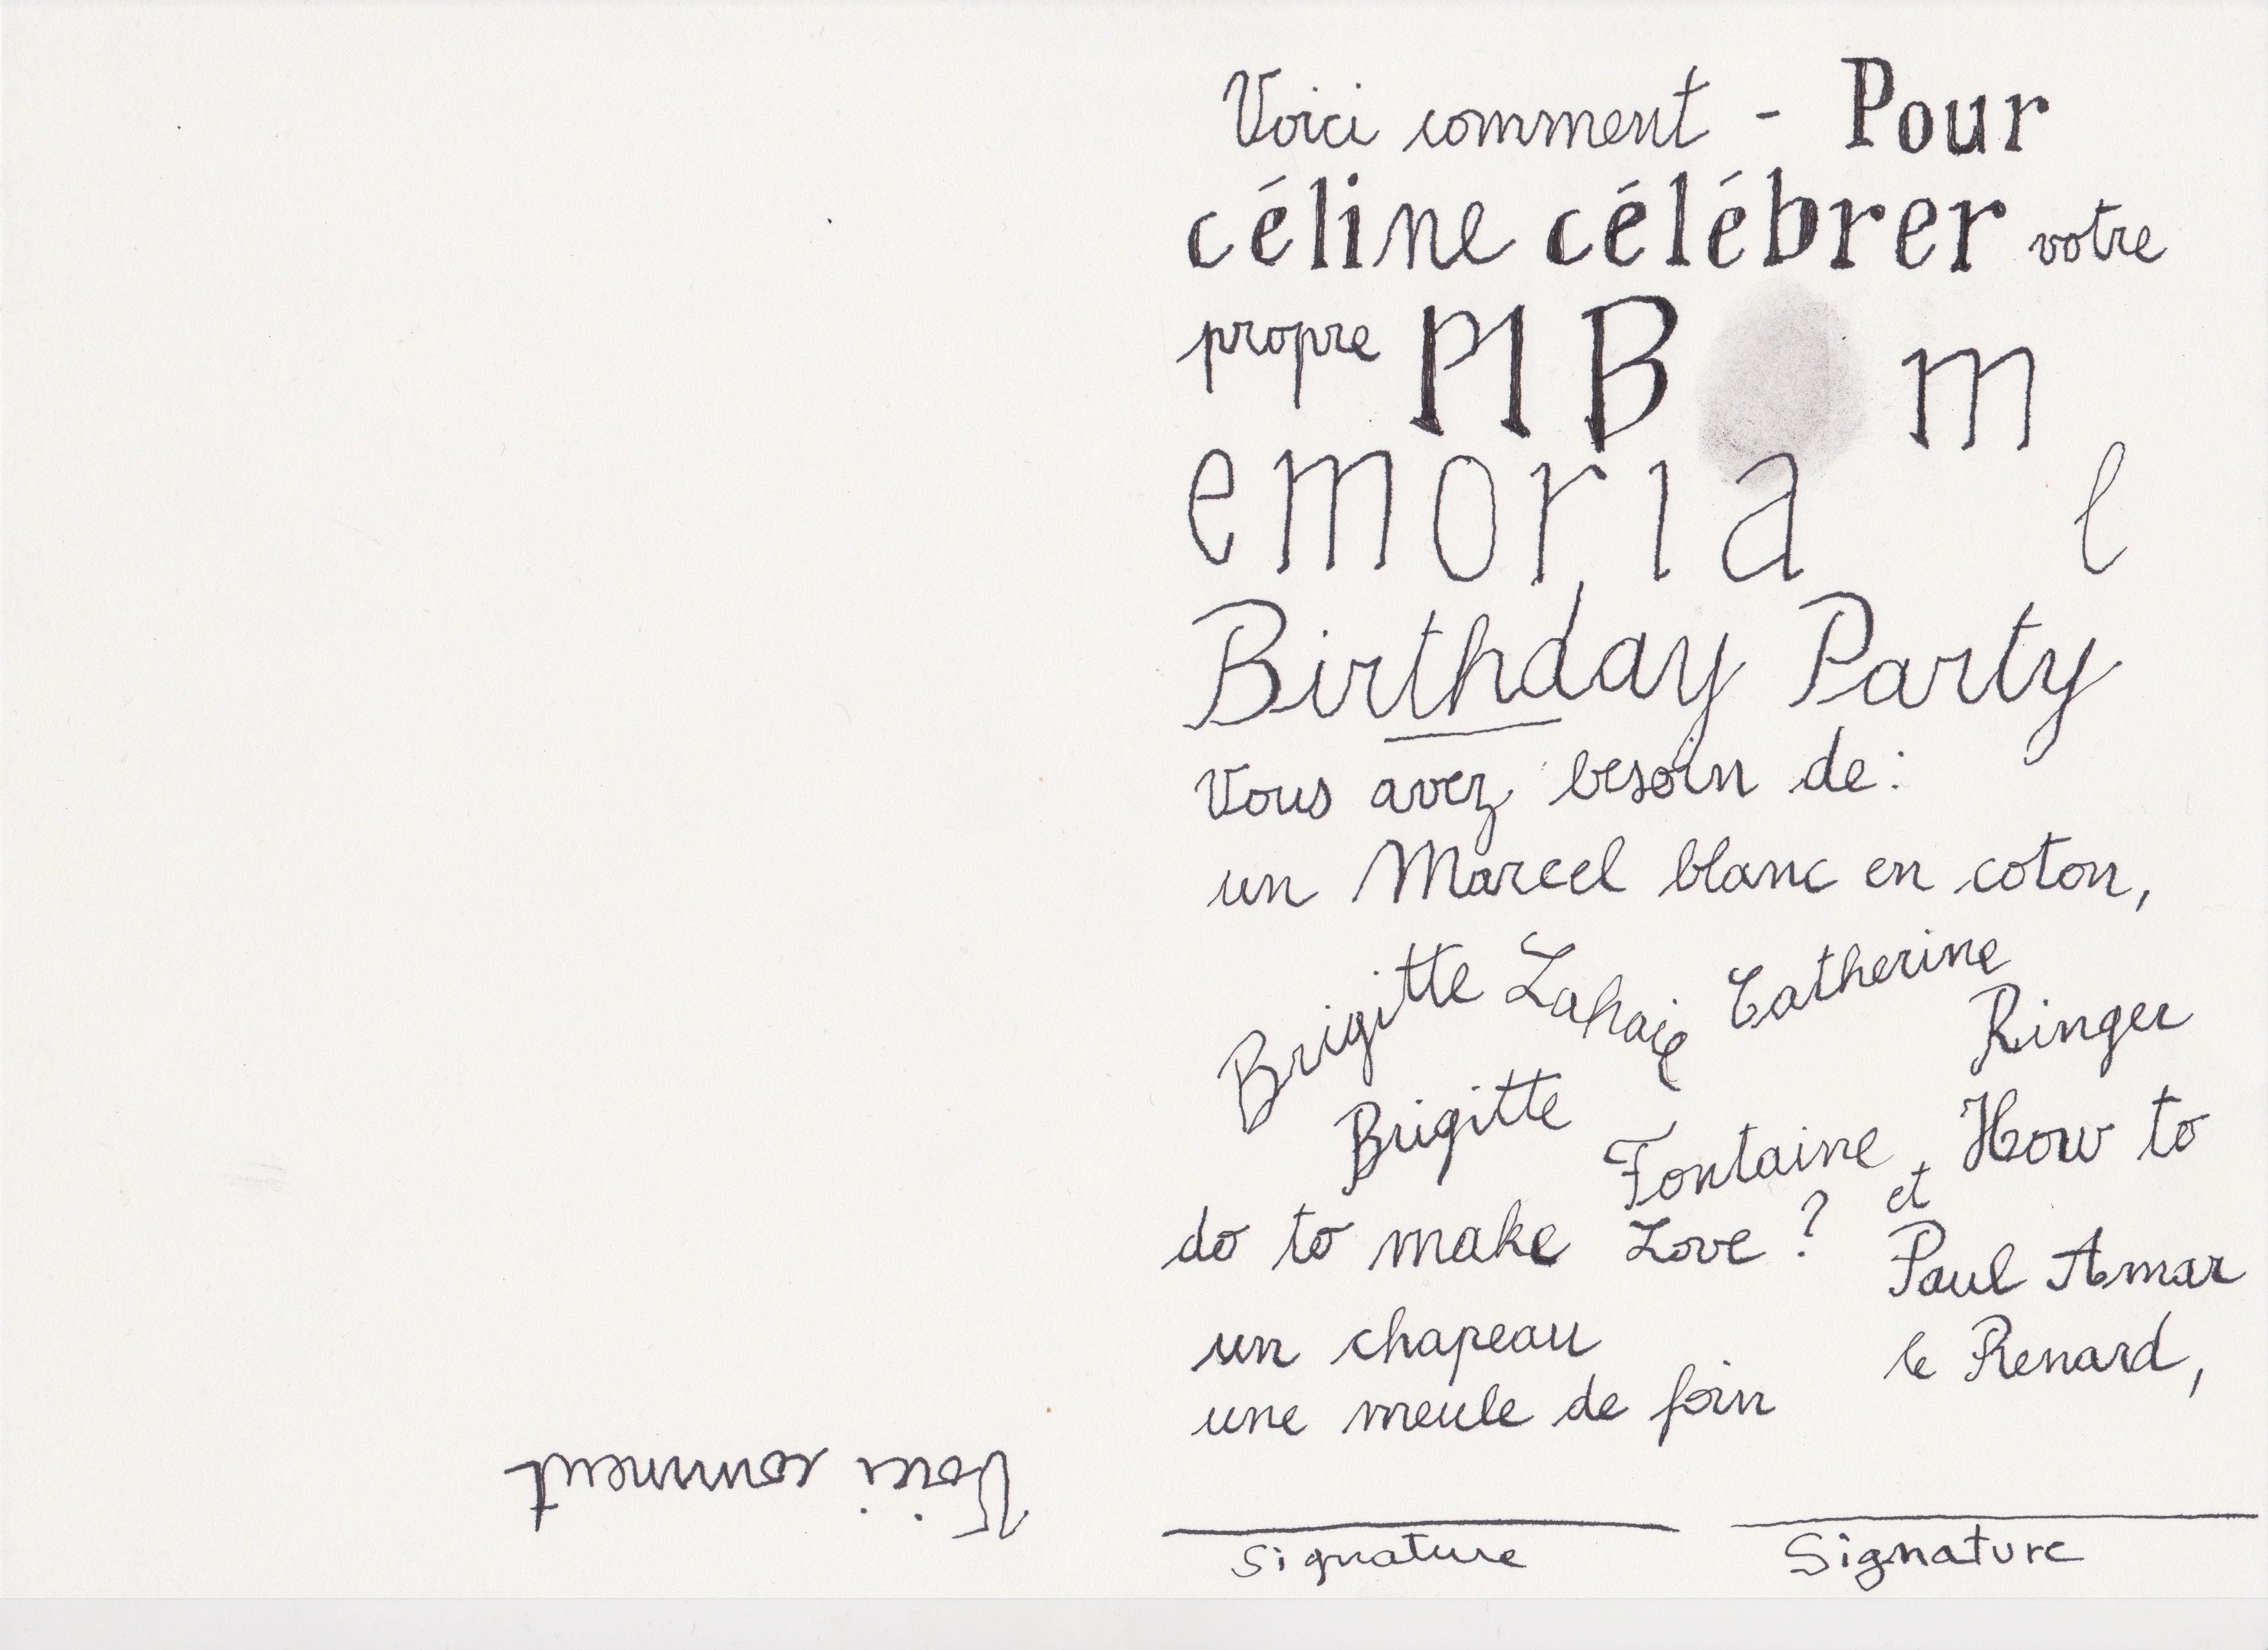 Voici comment - Pour
céline célébrer votre
propre MB m
emoria l
Birthday Party
Vous avez besoin de:
un Marcel blanc en coton,
Brigitte Lahaie Catherine
Ringer
Brigitte Fontaine et How to
do to make Love ? Paul Amar
un chapeau le Renard,
une meule de foin
Signature Signature
Voici comment